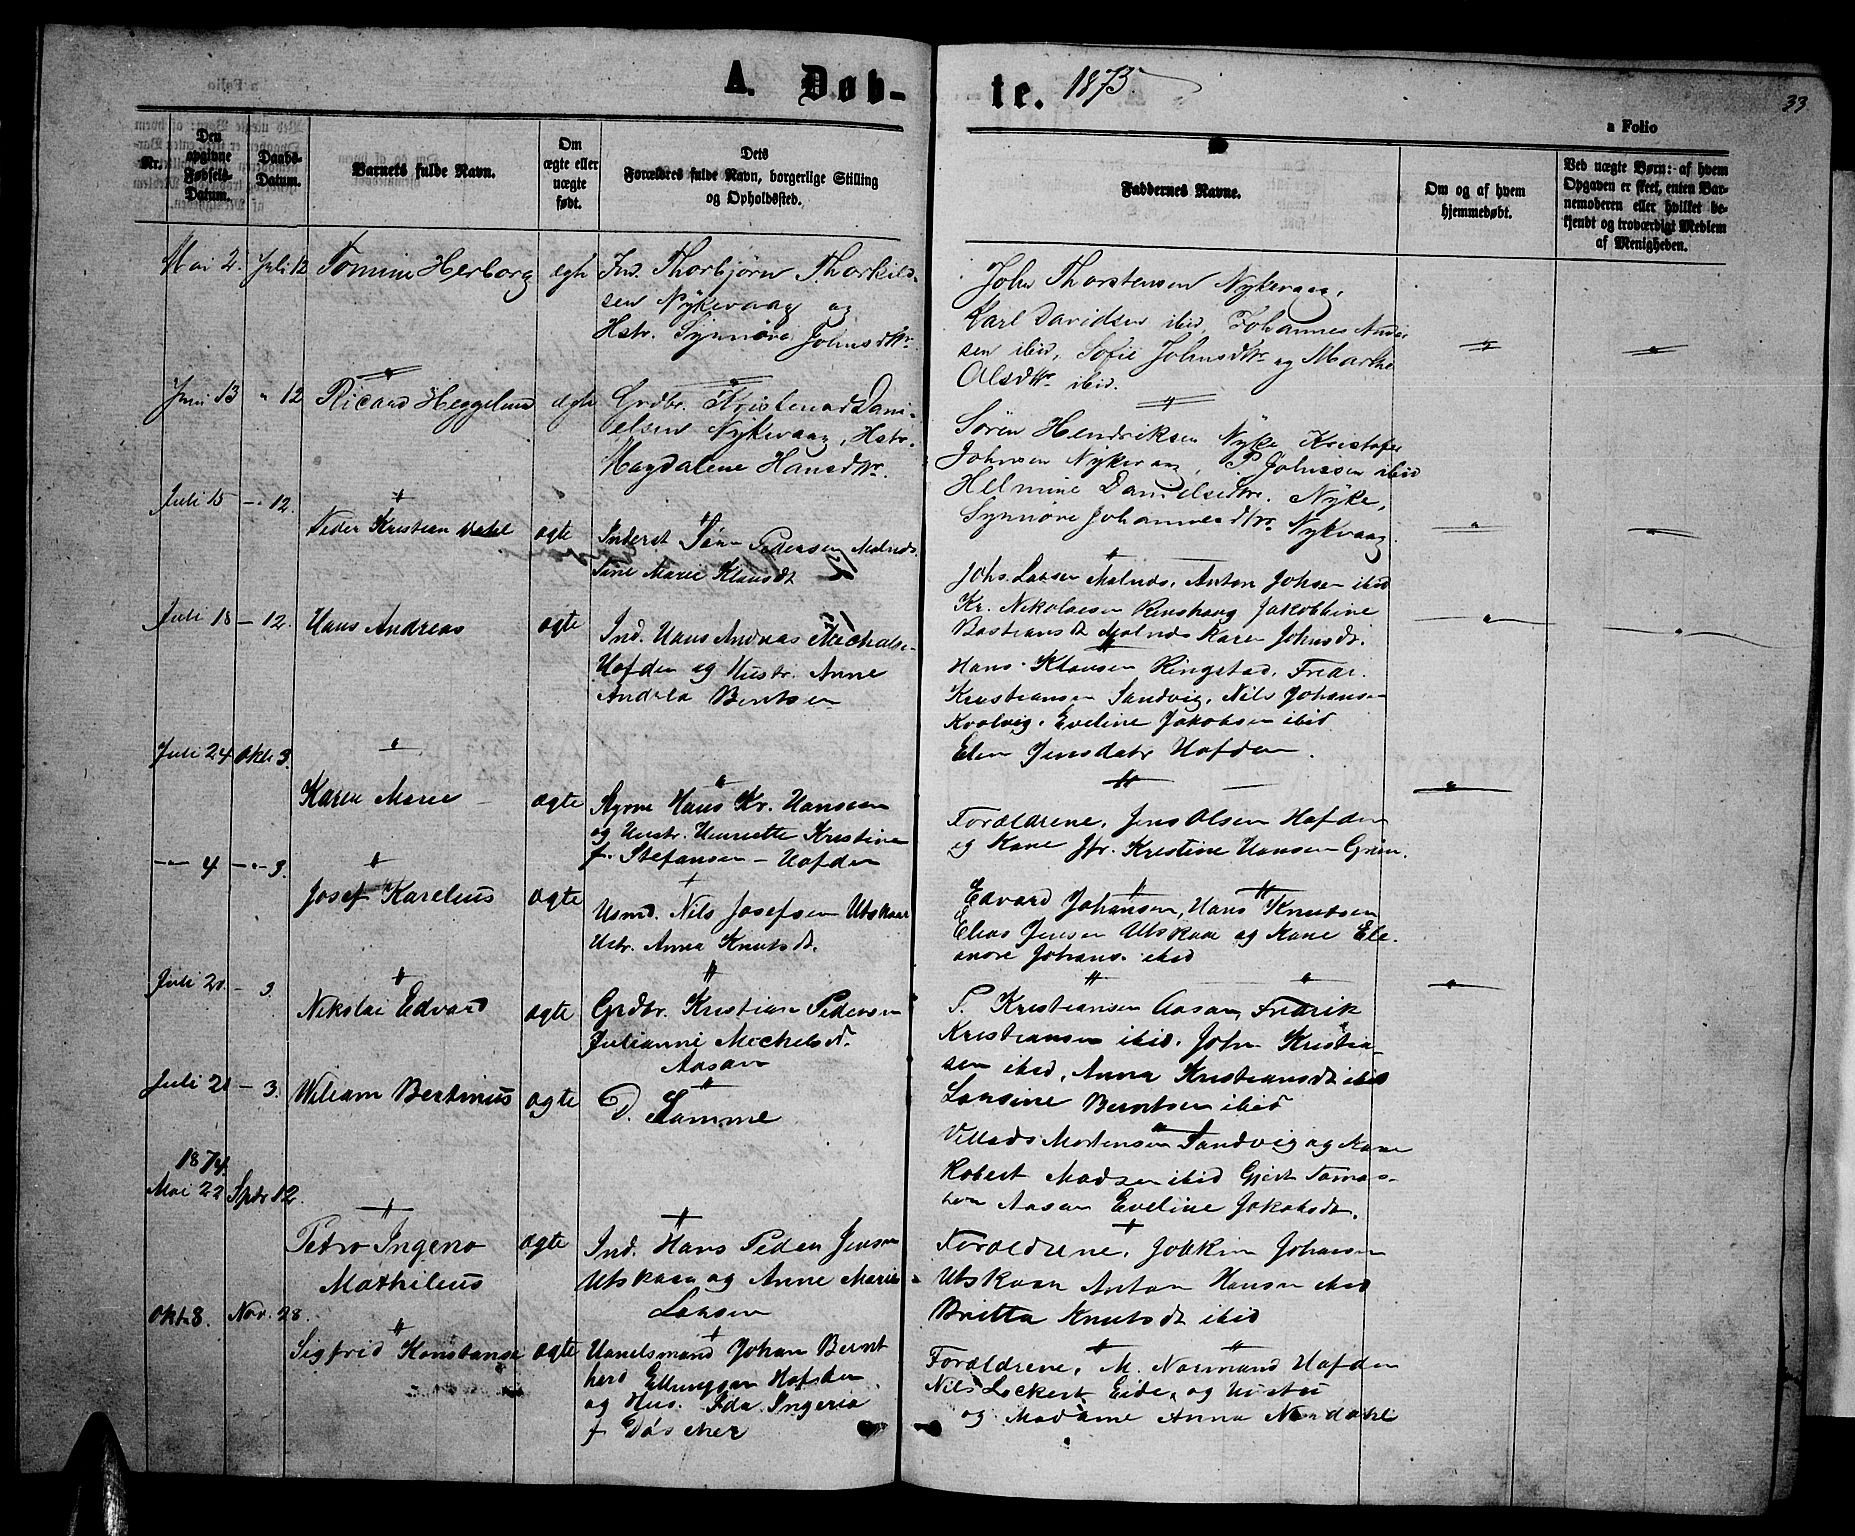 A. Døb-
te. 1873
33
a Folio
Nr.
Den opgivne Fødsels-Datum.
Daabs-Datum.
Barnets fulde Navn.
Om ægte eller uægte født.
Dets
Forældres fulde Navn, borgerlige Stilling
og Opholdssted.
Faddernes Navne.
Om og af hvem
hjemmedøbt.
Ved uægte Børn: af hvem
Opgaven er skeet, enten Bar-
nemoderen eller hvilket be-
kjendt og troværdigt Medlem
af Menigheden.
Mai 2. Juli 12 Tomine Herborg ægte Ind. Thorbjørn Thorkild-
sen Nykevaag og
Hstr. Synnøve Johnsdtr.
John Thorstensen Nykevaag,
Karl Davidsen ibid, Johannes
sen ibid, Sofie Johnsdtr og Marthe
Olsdtr ibid.
Juni 13 " 12 Ricard Heggelund ægte Grdbr. Kristen Dani-
elsen Nykevaag, Hstr.
Magdalene Hansdtr.
Søren Hendriksen Nyke Kristofer
Johnsen Nykevaag, P Johnssen ibid
Helmine Danielsdtr. Nyke,
Synnøve Johannesdtr Nykvaag
Juli 15 - 12.
Peder Kristian Dahl ægte Inderst Pedersen Malnes.
Sine Marie Klausdt
Johs. Larsen Malnes, Anton Johsen ibid
Kr. Nikolaisen Jakobbine
Bastiansdt Malnes Karen Johnsdt.
Juli 18 - 12. Hans Andreas ægte
Ind. Hans Andreas Mechelse-
Hofden og Hustr. Anne
Bentsen
Hans Klausen Ringstad, Fredr.
Kristiansen Sandvig, Nils Johansen
Kvalvig. Eveline Jakobsen ibid
Elen Jensdatr Hofden.
Juli 24 Okbr 3.
Karen Marie ægte Styrm Hans Kr. Hansen
og Hustr. Henriette Kristine
f. Stefansen - Hofden
Forældrene, Jens Olsen Hofden
og Kone Jfr. Kristine Hansen
-"- 4 -"- 3.
Josef Karelius ægte
Usmd. Nils Josefsen Utskaar
Ustr. Anna Knutsdt.
Edvard Johansen, Hans Knutsen
Elias Jensen Utskaar og Kone Ele-
anore Johans. ibid
Juli 20. - 3.
Nikolai Edvard ægte Grdbr. Kristian Pedersen
Julianne Mechelsd.
Aasan
P. Kristiansen Aasan, Fredrik
Kristiansen ibid. John Kristia-
sen ibid, Anna Kristiansdt ibid
Lausine Berntsen ibid
Juli 20 - 3. Wiliam Bertinus ægte D. Samme
Villads Mortensen Sandvig og Kone
Robert Madsen ibid Gjert Tomas-
sen Aasan Eveline Jakobsdt.
1874.
Mai 22 Spbr 12.
Petro Ingeno
Mathileus
ægte Ind. Hans Peder Jensen
Utskaar og Anne Marie
Larsen
Forældrene, Joakim Johansen
Utskaar Anton Hansen ibid
Britta Knutsdt ibid
Okt 8. Nov. 28.
Sigfrid Konstanse ægte Handelsmand Johan Bernt
hard Ellingsen Hofden
og Hus. Ida Ingeria
f Døscher
Forældrene, M. Normand Hofden
Nils Lockert Eide, og Hustru
og Madame Anna Nordahl